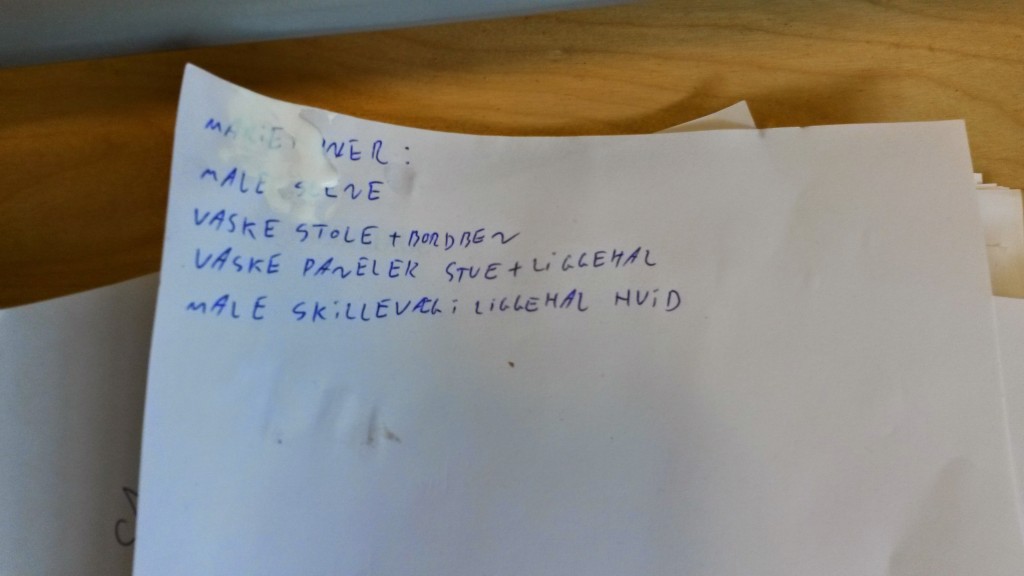 MALE
VASKE STOLE + BORDBEN
VASKE PANELER STUE + LIGGEHAL
MALE SKILLEVÆG i LIGGEHAL HVID